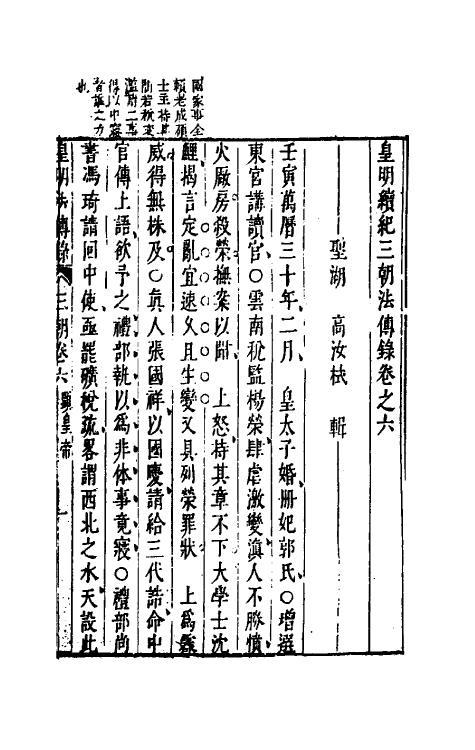 皇明續紀三朝法傳錄卷之六
聖湖　高汝栻　輯
壬寅萬曆三十年二月　皇太子婚冊妃郭氏○增選
東宮講讀官○雲南稅監楊榮肆虐激變滇人不勝憤
火厰房殺榮撫案以聞　上怒持其章不下大學士沈
鯉揭言定亂宜速久且生變又具列榮罪狀　上爲霽
威得無株及○眞人張國祥以國慶請給三代誥命中
官傳上語欲予之禮部執以爲非体事竟寢○禮部尚
書馮琦請囘中使亟罷礦稅疏畧謂西北之水天設此
皇明法傳錄　三朝卷六　顯皇帝　一
國家事全
賴老成碩
士主持
得以中寢
者誰之力
也